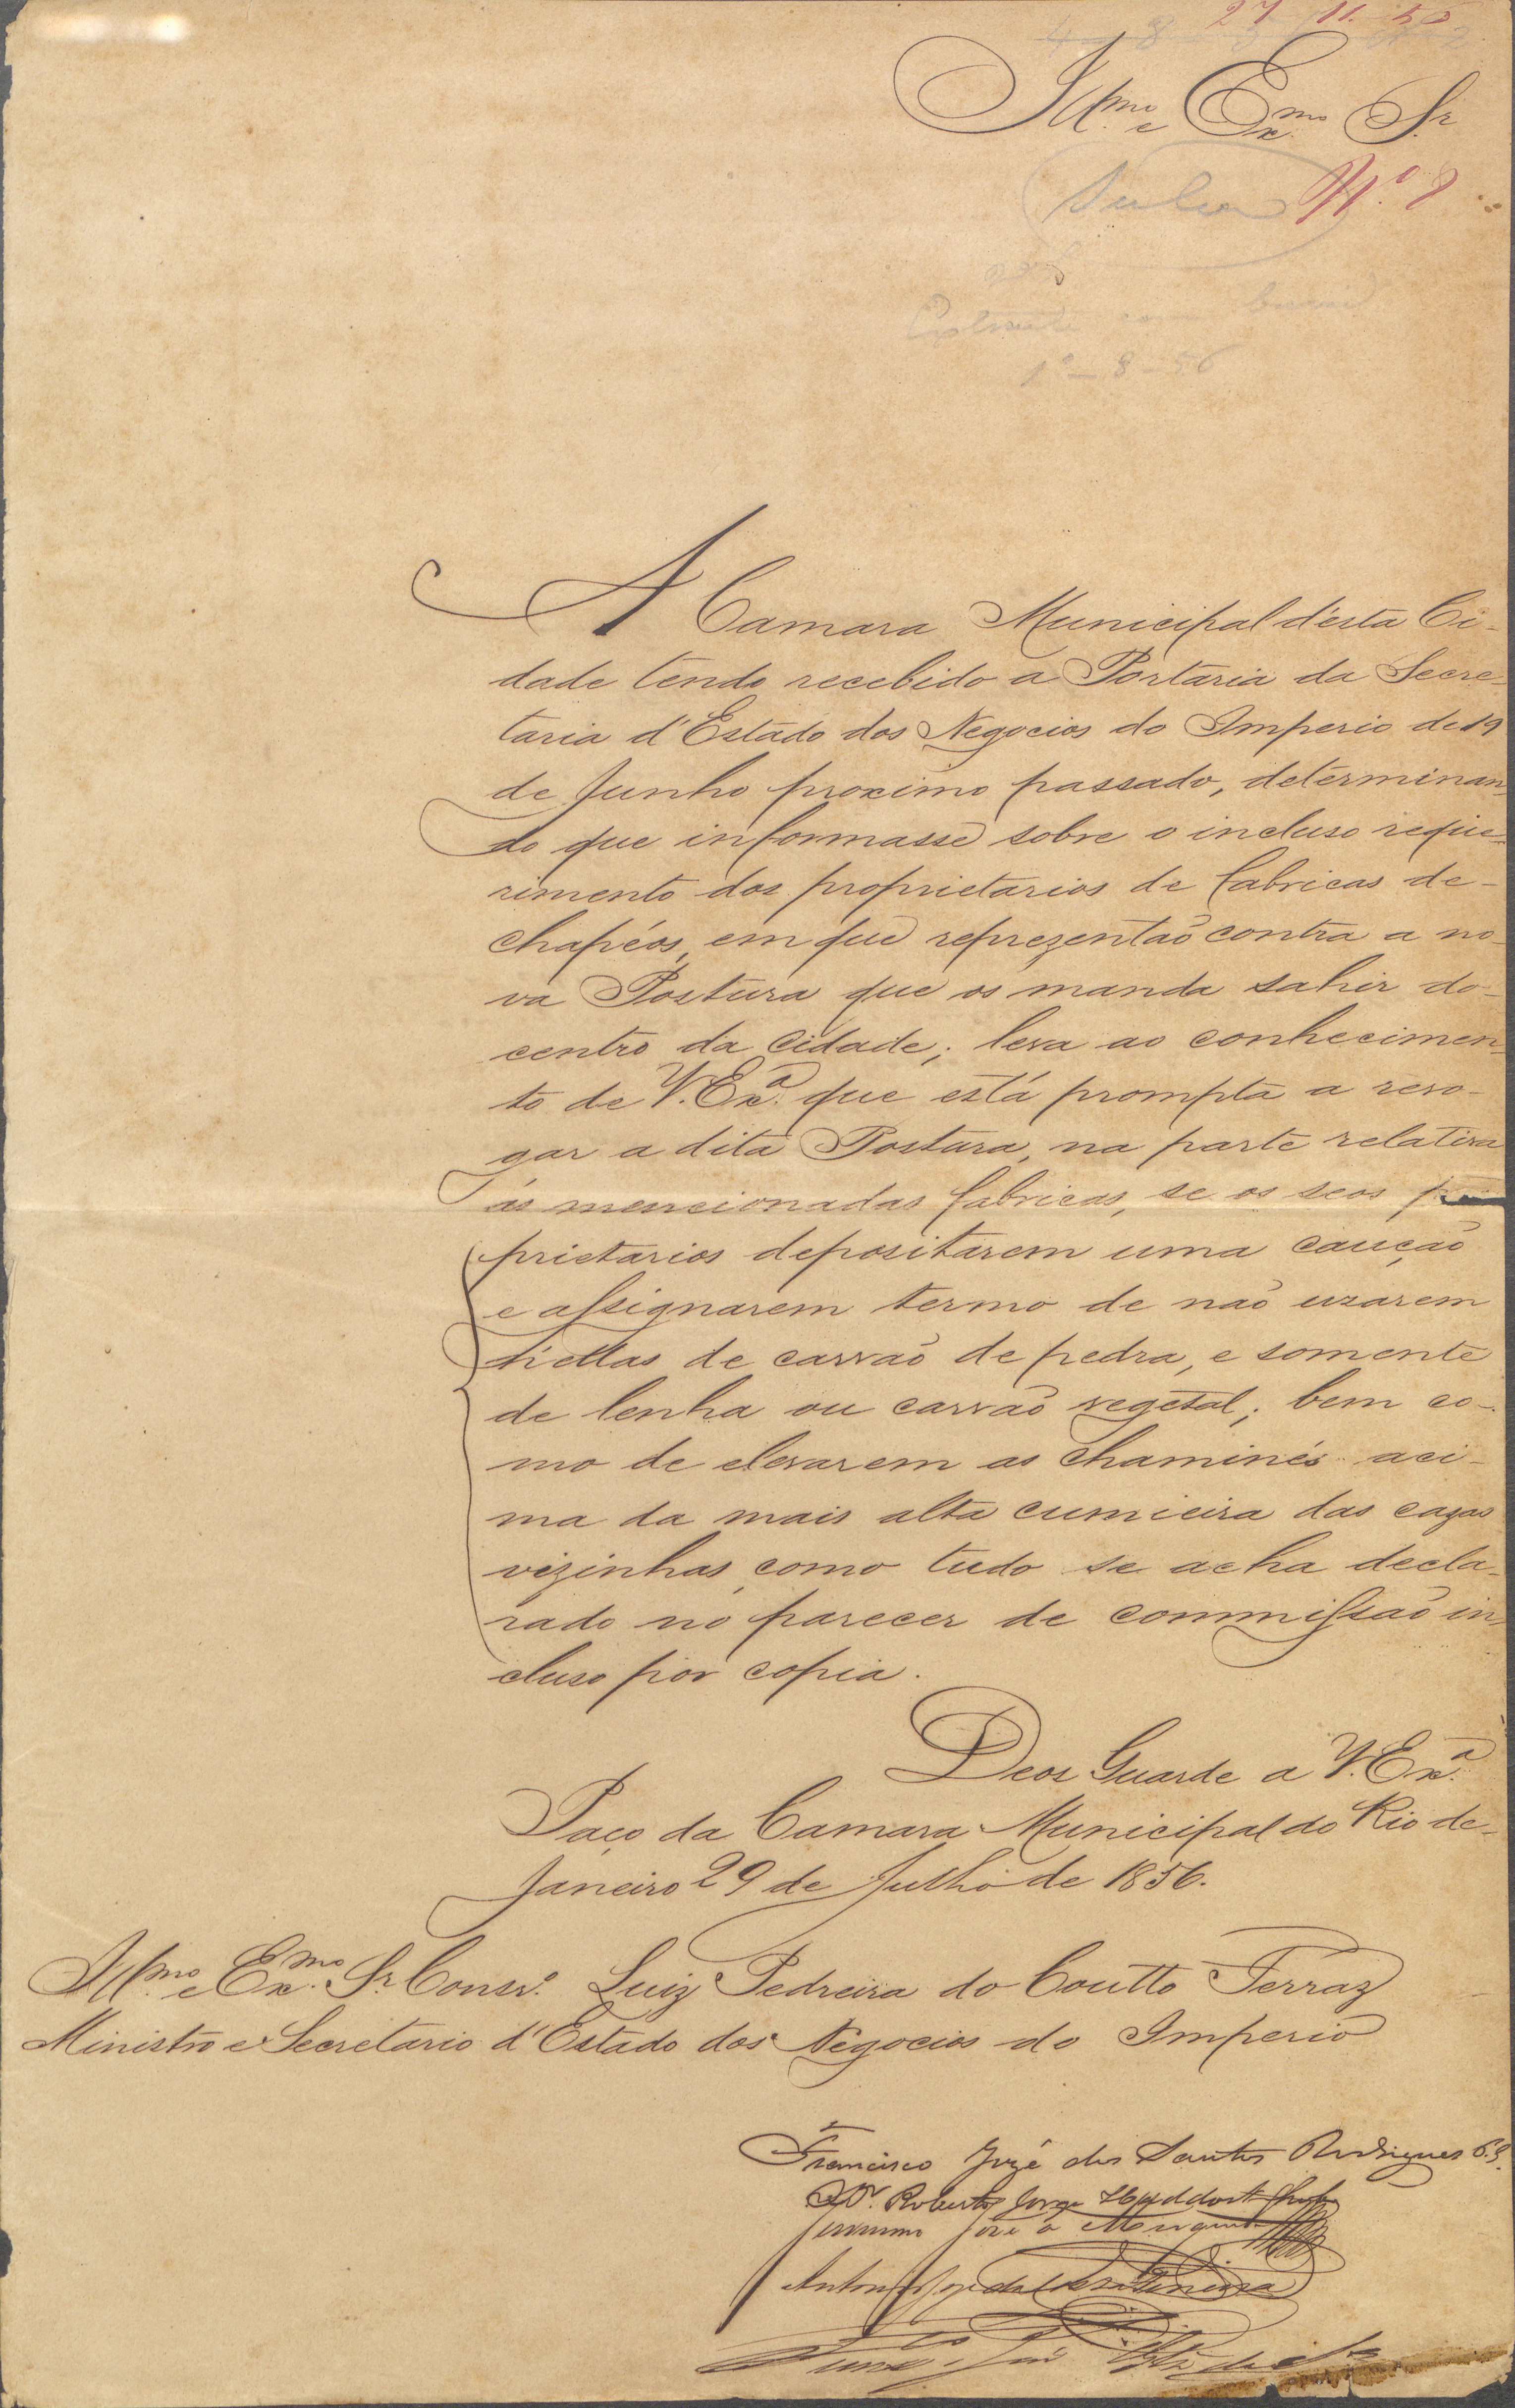 27 11 55
Illmo e Exmo Sr
Nº 8
1º - 8 - 56
A Camara Municipal d'esta Ci-
dade tendo recebido a Portaria da Secre-
taria d'Estado dos Negocios do Imperio de 19
de Junho proximo passado, determinan-
do que informasse sobre o incluso reque-
rimento dos proprietarios de fabricas de-
chapéos, em que reprezentão contra a no-
va Postura que os manda sahir do-
centro da Cidade; leva ao conhecimen-
to de V. Exª. que está prompta a revo-
gar a dita Postura, na parte relativa
ás mencionadas fabricas, se os seos
prietarios depositarem uma caução
e assignarem termo de não uzarem
n'ellas de carvão de pedra, e somente
de lenha ou carvão vegetal; bem co-
mo de elevarem as chaminés aci-
ma da mais alta cumieira das cazas
vizinhas, como tudo se acha decla-
rado no parecer de commissão in-
cluso por copia.
Deos Guarde a V. Exª.
Paço da Camara Municipal do Rio de-
Janeiro 29 de Julho de 1856.
Illmo e Exmo Sr. Consro. Luiz Pedreira do Coutto Ferraz
Ministro e Secretario d'Estado dos Negocios do Imperio
Francisco Jozé dos Santos Rodrigues
Dr. Roberto Jorge Haddock
José
Antonio